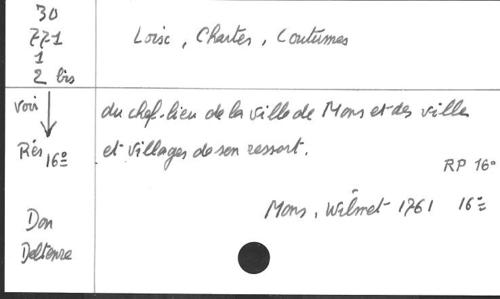 30
771
1
2 bis
Loisc, Chartes, Coutumes
voir
Rés 16º
du chef-lieu de la ville de Mons et des ville
et villages de son ressort.
RP 16º
Mons, Wilmet 1761 16º
Don
Deltenre